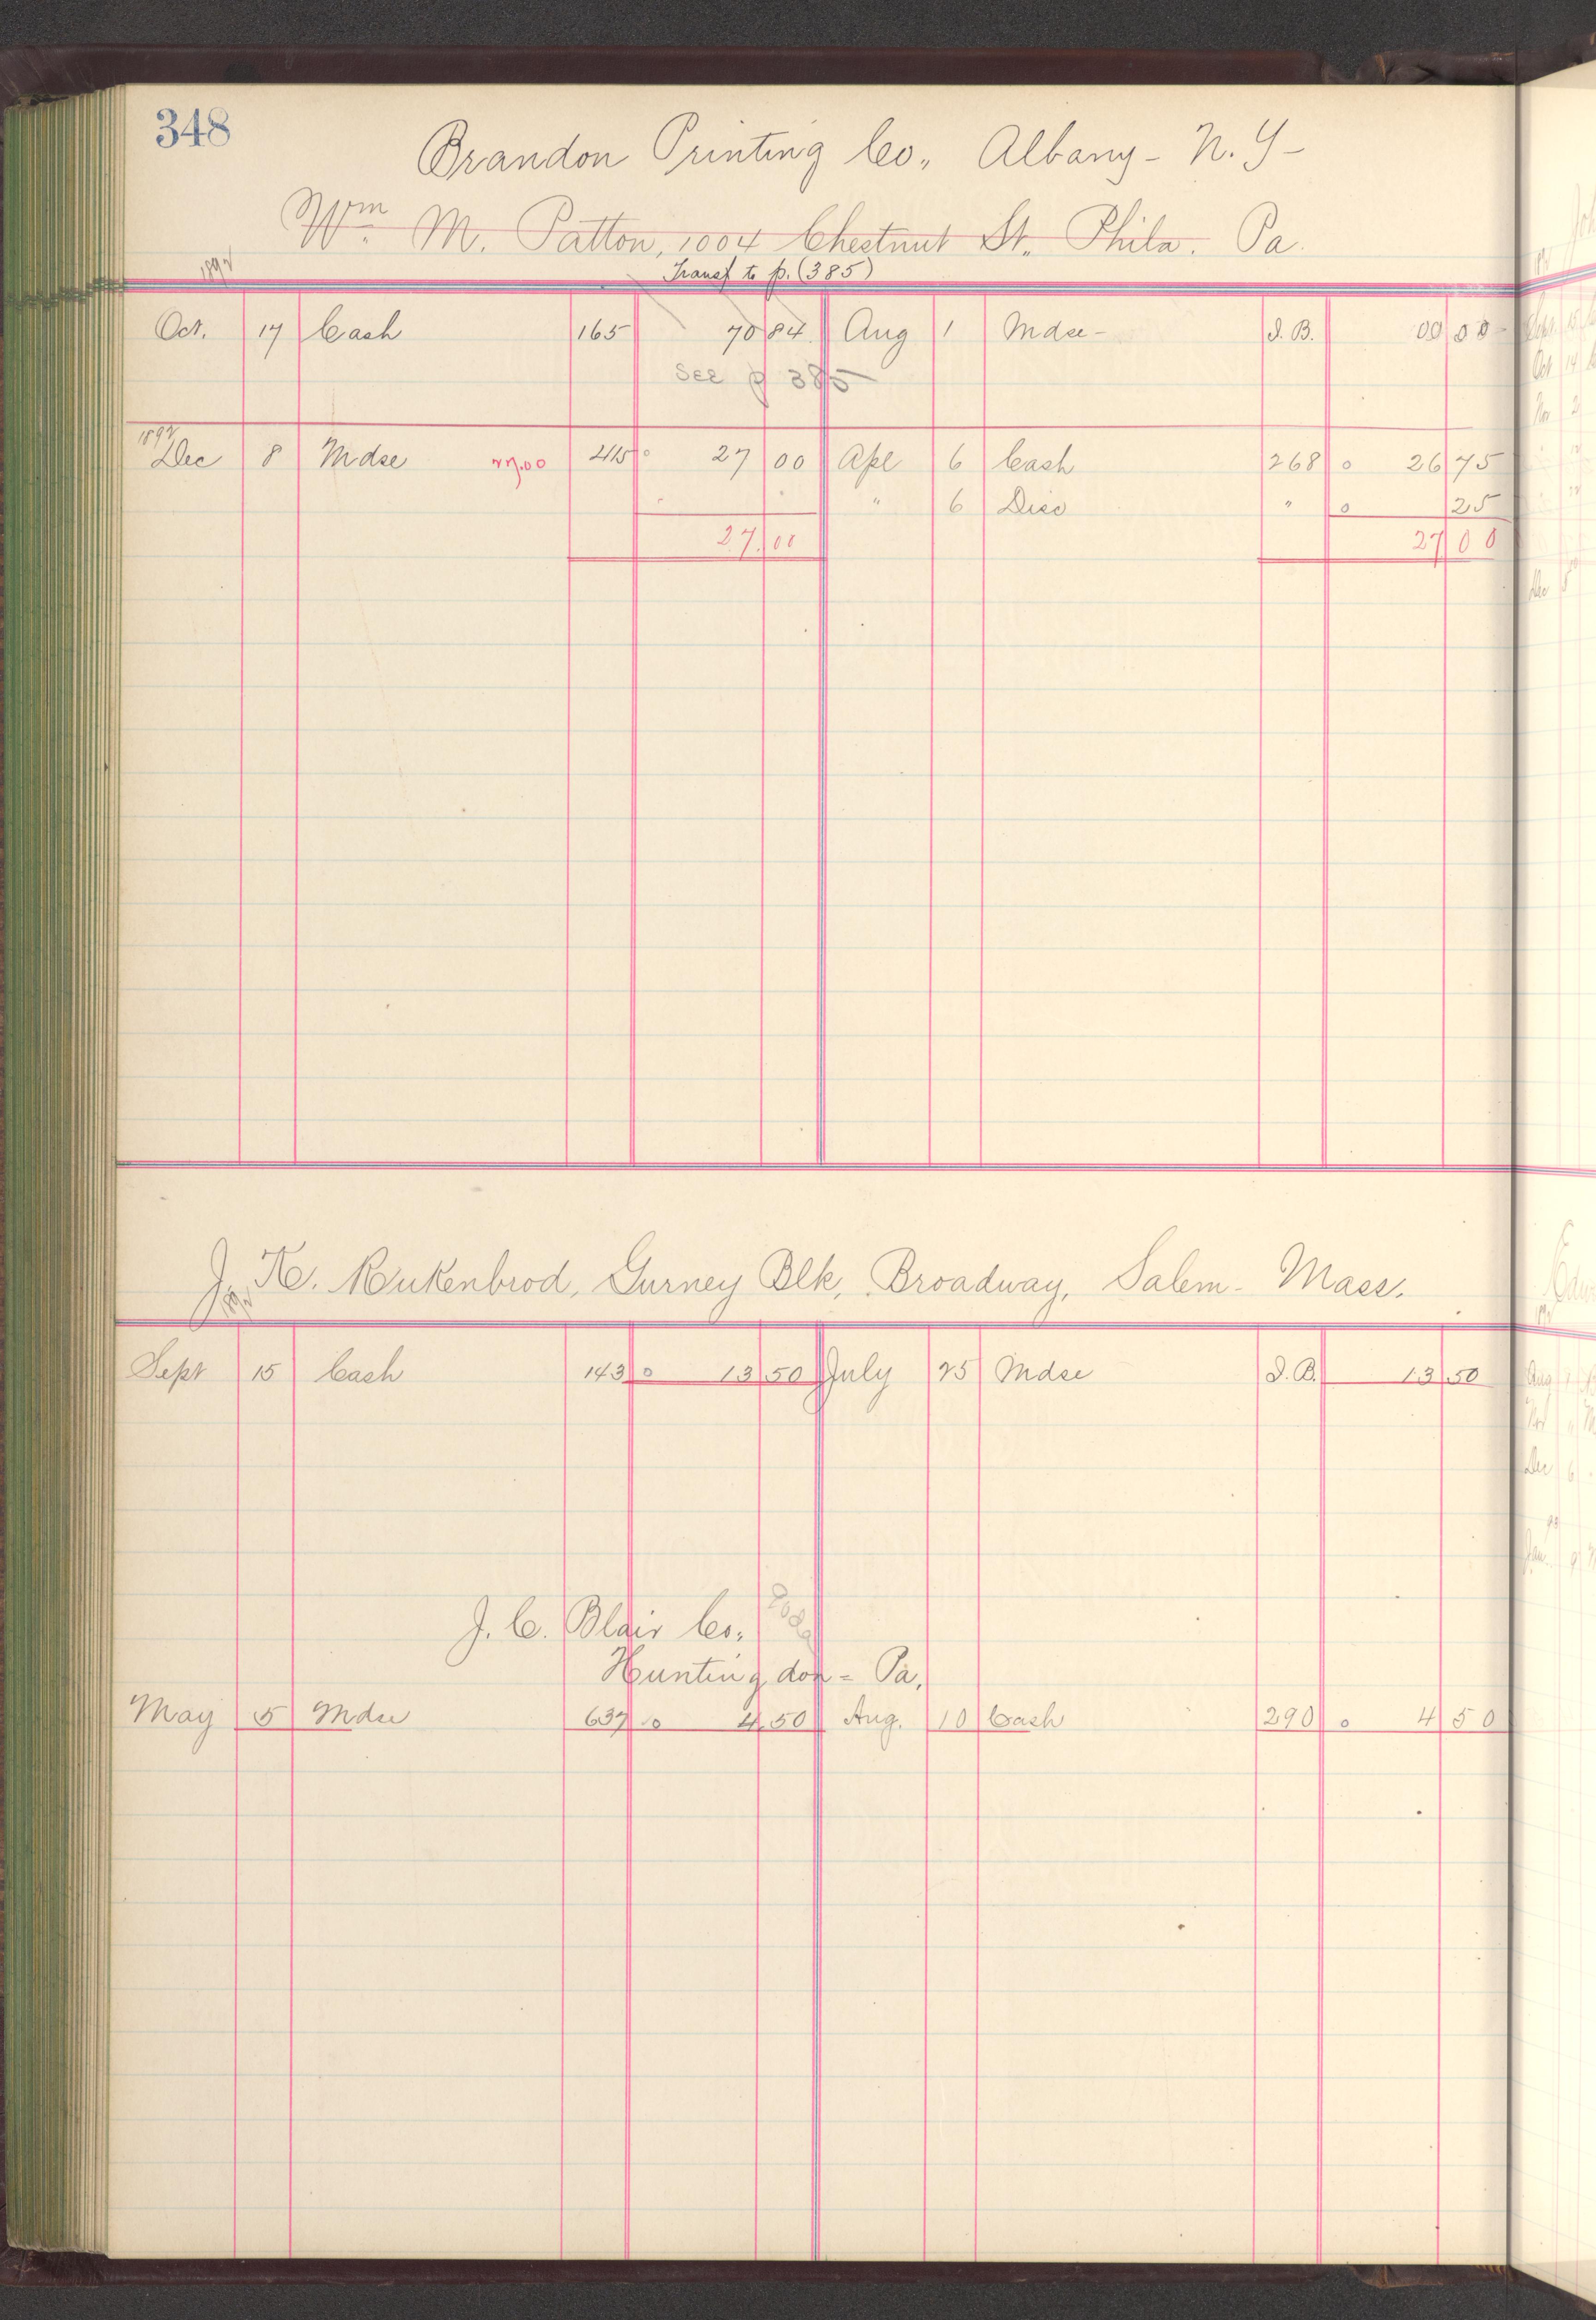 348
Brandon Printing Co., Albany - N. Y -
Wm. M. Patton, 1004 Chestnut St. Phila. Pa.
Transf to p. (385)
Oct. 17 Cash 165 70 84 Aug 1 Mdse - J. B. 00 00
See p 385
1892
Dec 8 Mdse 27.00 415 0 27 00 Apl 6 Cash 268 0 26 75
" 6 Disc " 0 25
27 00 27 00
J. K. Rukenbrod, Gurney Blk, Broadway, Salem - Mass.
Sept 15 Cash 143 0 13 50 July 25 Mdse J. B. 13 50
J. C. Blair Co.,
Huntingdon - Pa.
May 5 Mdse 637 0 4 50 Aug. 10 Cash 290 0 4 50